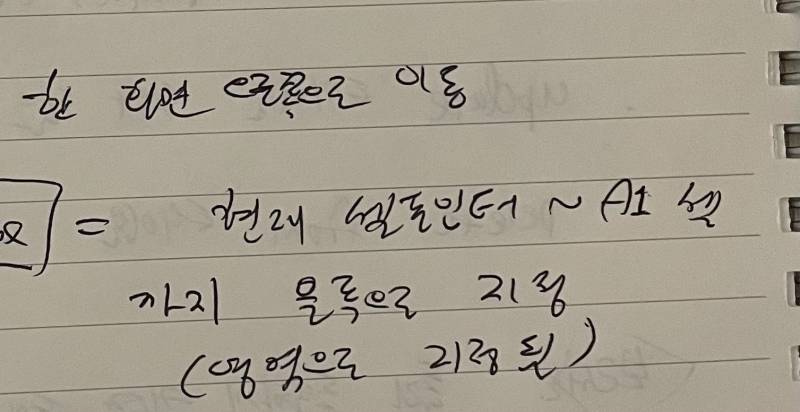 한 화면 오른쪽으로 이동
= 현재 셀포인터 ~ A1 셀
까지 블록으로 지정
(영역으로 지정됨)